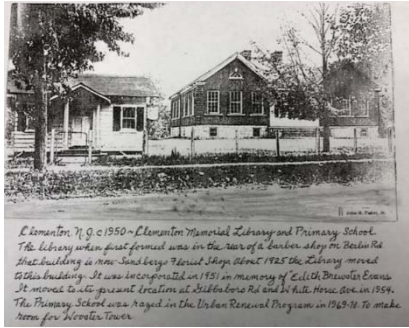 John R. Fisher, Sr.
Clementon, N.J. c 1950 ~ Clementon Memorial Library and Primary School
The library when first formed was in the rear of a barber shop on Berlin Rd
that building is now Sandbergs Florist Shop. About 1925 the Library moved
to this building. It was incorporated in 1951 in memory of Edith Brewster Evans
It moved to its present location at Gibbsboro Rd and White Horse Ave in 1954.
The Primary School was razed in the Urban Renewal Program in 1969-70. To make
room for Wooster Tower